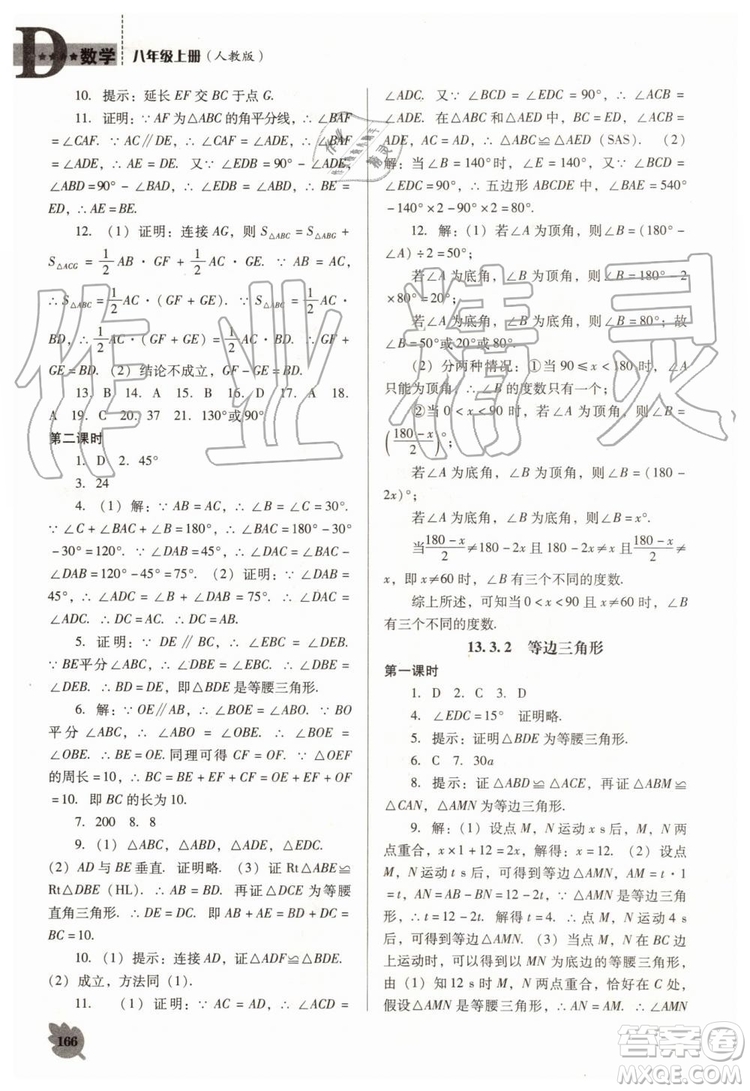 D ★★★★ 数学 八年级上册（人教版）
10. 提示：延长 EF 交 BC 于点 G.
11. 证明：∵ AF 为△ABC 的角平分线，∴ ∠BAF
= ∠CAF. ∵ AC∥DF，∴ ∠CAF = ∠ADE，∴ ∠BAF
= ∠ADE，∴ AE = DE. 又∵ ∠EDB = 90° - ∠ADE，
∠ABD = 90° - ∠BAD，∴ ∠EDB = ∠ABD，∴ BE =
ED，∴ AE = BE.
12. （1）证明：连接 AG，则 S△ABC = S△ABG +
S△ACG = 1/2 AB · GF + 1/2 AC · GE. ∵ AB = AC，
∴ S△ABC = 1/2 AC · (GF + GE). ∵ S△ABC = 1/2 AC ·
BD，∴ 1/2 AC · (GF + GE) = 1/2 AC · BD. ∴ GF +
GE = BD. （2）结论不成立，应为 GF - GE = BD.
13. B 14. A 15. B 16. D 17. A 18.
A 19. C 20. 37 21. 130°或90°
第二课时
1. D 2. 45°
3. 24
4. （1）解：∵ AB = AC，∴ ∠B = ∠C = 30°.
∵ ∠C + ∠BAC + ∠B = 180°，∴ ∠BAC = 180° - 30°
- 30° = 120°. ∵ ∠DAB = 45°，∴ ∠DAC = ∠BAC -
∠DAB = 120° - 45° = 75°. （2）证明：∵ ∠DAB =
45°，∴ ∠ADC = ∠B + ∠DAB = 75°，∴ ∠DAC =
∠ADC. ∴ DC = AC，∴ DC = AB.
5. 证明：∵ DE∥BC，∴ ∠DEB = ∠EBC. ∵
BE平分∠ABC，∴ ∠DBE = ∠EBC，∴ ∠DBE =
∠DEB. ∴ △DBE 是等腰三角形.
6. 解：∵ OE∥AB，∴ ∠BOE = ∠ABO. ∵ BO
平分 ∠ABC，∴ ∠ABO = ∠OBE. ∴ ∠BOE =
∠OBE. ∴ BE = OE. 同理可得 CF = OF. ∵ △OEF
的周长 = 10，∴ BC = BE + EF + CF = OE + EF + OF
= 10. 即 BC 的长为 10.
7. 200 8. 8
9. （1）△ABC，△ABD，△ADE，△EDC.
（2）AD 与 BE 垂直. 证明略. （3）证 Rt△ABE≌
Rt△DBE（HL）. 再证△DCE 为等腰
直角三角形. ∴ AB + AE = BD + DC = BC = 10.
10. （1）提示：连接 AD，证△ADF≌△BDE.
（2）成立，方法同（1）.
11. （1）证明：∵ AC = AD，∴ ∠ACD =
166
∠ADC. 又∵ ∠BCD = ∠EDC = 90°，∴ ∠ACB =
∠ADE. 在△ABC 和△AED 中，BC = ED，∠ACB =
∠ADE，AC = AD，∴ △ABC≌△AED（SAS）. （2）
解：当∠B = 140°时，∠E = 140°，又∵ ∠BCD =
∠EDC = 90°，∴ 五边形 ABCDE 中，∠BAE = 540°
- 140° × 2 - 90° × 2 = 80°.
12. 解：（1）若∠A 为顶角，则∠B = (180° -
∠A) ÷ 2 = 50°；
若∠A 为底角，∠B 为顶角，则∠B = 180° - 2
× 80° = 20°；
若∠A 为底角，∠B 为底角，则∠B = 80°；故
∠B = 50°或20°或80°.
（2）分两种情况：①当 90 ≤ x < 180 时，∠A 只
能为顶角，∴ ∠B 的度数只有一个；
②当 0 < x < 90 时，若∠A 为顶角，则∠B =
((180 - x)/2)°；
若∠A 为底角，∠B 为顶角，则∠B = (180 -
2x)°；
若∠A 为底角，∠B 为底角，则∠B = x°.
当(180 - x)/2 ≠ 180 - 2x 且 180 - 2x ≠ x 且(180 - x)/2 ≠
x，即 x ≠ 60 时，∠B 有三个不同的度数.
综上所述，可知当 0 < x < 90 且 x ≠ 60 时，∠B
有三个不同的度数.
13. 3. 2 等边三角形
第一课时
1. D 2. C 3. D
4. ∠EDC = 15° 证明略.
5. 提示：证明△BDE 为等腰三角形.
6. C 7. 30a
8. 提示：证△ABD≌△ACE，再证△ABM≌
△CAN，△AMN 是等边三角形.
9. 解：（1）设点 M，N 运动 x s 后，M，N 两
点重合，x × 1 + 12 = 2x. 解得 x = 12. （2）设点
M，N 运动 t s 后，可得到等边三角形△AMN. AM = t · 1
= t，AN = AB - BN = 12 - 2t. ∵ △AMN 是等边三角
形，∴ t = 12 - 2t. 解得 t = 4. ∴ 点 M，N 运动 4 s
后，可得到等边三角形△AMN. （3）当点 M，N 在
BC 边上运动时，可以得到以 MN 为底边的等腰三角形.
由（1）知 12 s 时 M，N 两点重合，恰好在 C 处，
假设△AMN 是等腰三角形，∴ AN = AM. ∴ ∠AMN
作业精灵
答案圈
MXQE.COM